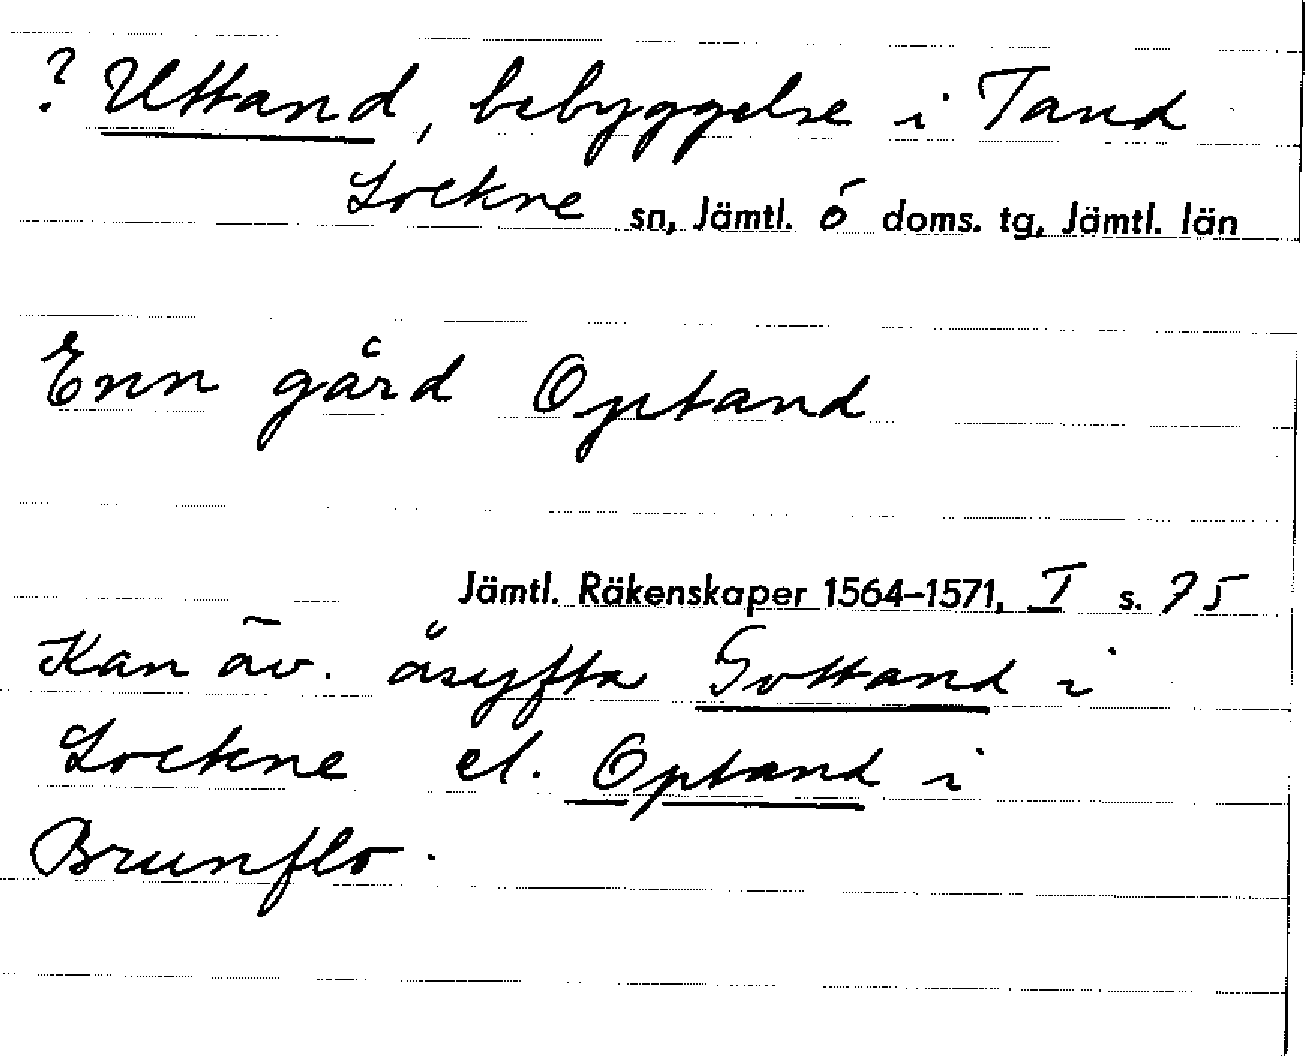 ? Uttand, bebyggelse i Tand
Lockne sn, Jämtl. ö doms. tg, Jämtl. län
Enn gård Optand
Jämtl. Räkenskaper 1564–1571, I s. 75
Kan äv. åsyfta Gottand i
Lockne el. Optand i
Brunflo.